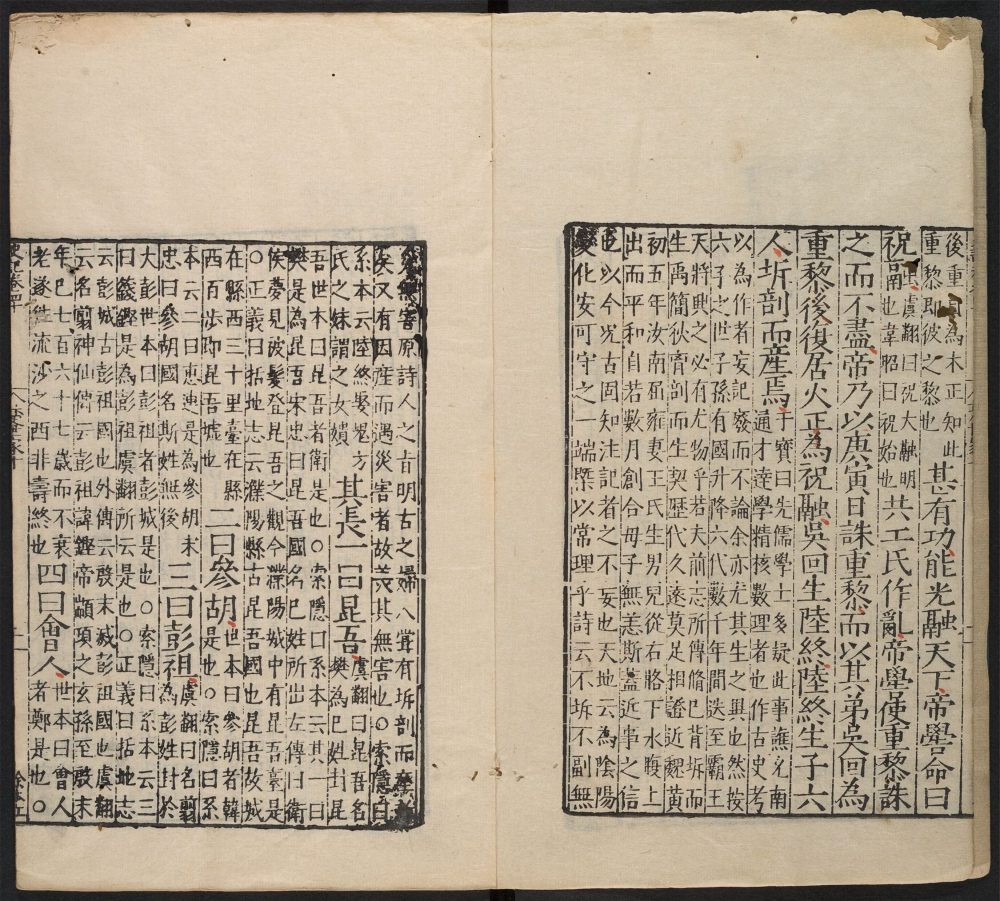 後重 為木正知此
重黎即彼之黎也
甚有功能光融天下帝嚳命曰
祝融
虞翻曰祝大融明
也韋昭曰祝始也
共工氏作亂帝嚳使重黎誅
之而不盡帝乃以庚寅日誅重黎而以其弟吳回為
重黎後復居火正為祝融吳回生陸終陸終生子六
人坼剖而產焉
干寶曰先儒學士多疑此事譙允南
通才達學精核數理者也作古史考
以為作者妄記廢而不論余亦尤其生之異也然按
六子之世子孫有國升降六代數千年間迭至霸王
天將興之必有尤物乎若夫前志所傳脩已背坼而
生禹簡狄胷剖而生契歷代久遠莫足相證近魏黃
初五年汝南屈雍妻王氏生男兒從右胳下水腹上
出而平和自若數月創合母子無恙斯蓋近事之信
也以今况古固知注記者之不妄也天地云為陰陽
變化安可守之一端槩以常理乎詩云不坼不副無
灾無害原詩人之旨明古之婦人甞有坼剖而產者
矣又有因產而遇災害者故美其無害也○索隱曰
系本云陸終娶鬼方
氏之妹謂之女嬇
其長一曰昆吾
虞翻曰昆吾名
樊為已姓封昆
吾世本曰昆吾者衛是也○索隱曰系本云其一曰
樊是為昆吾宋忠曰昆吾國名已姓所出左傳曰衛
侯夢見被髮登昆吾之觀今濮陽城中有昆吾臺是
○正義曰括地志云濮陽縣古昆吾國也昆吾故城
在縣西三十里臺在縣
西百步即昆吾墟也
二曰參胡
世本曰參胡者韓
是也○索隱曰系
本云二曰惠連是為參胡宋
忠曰參胡國名斯姓無後
三曰彭祖
虞翻曰名剪
為彭姓封於
大彭世本曰彭祖者彭城是也○索隱曰系本云三
曰籛鏗是為彭祖虞翻所云是也○正義曰括地志
云彭城古彭祖國也外傳云殷末滅彭祖國也虞翻
云名剪神仙傳云彭祖諱鏗帝顓頊之玄孫至殷末
年已七百六十七歲而不衰
老遂往流沙之西非壽終也
四曰會人
世本曰會人
者鄭是也○